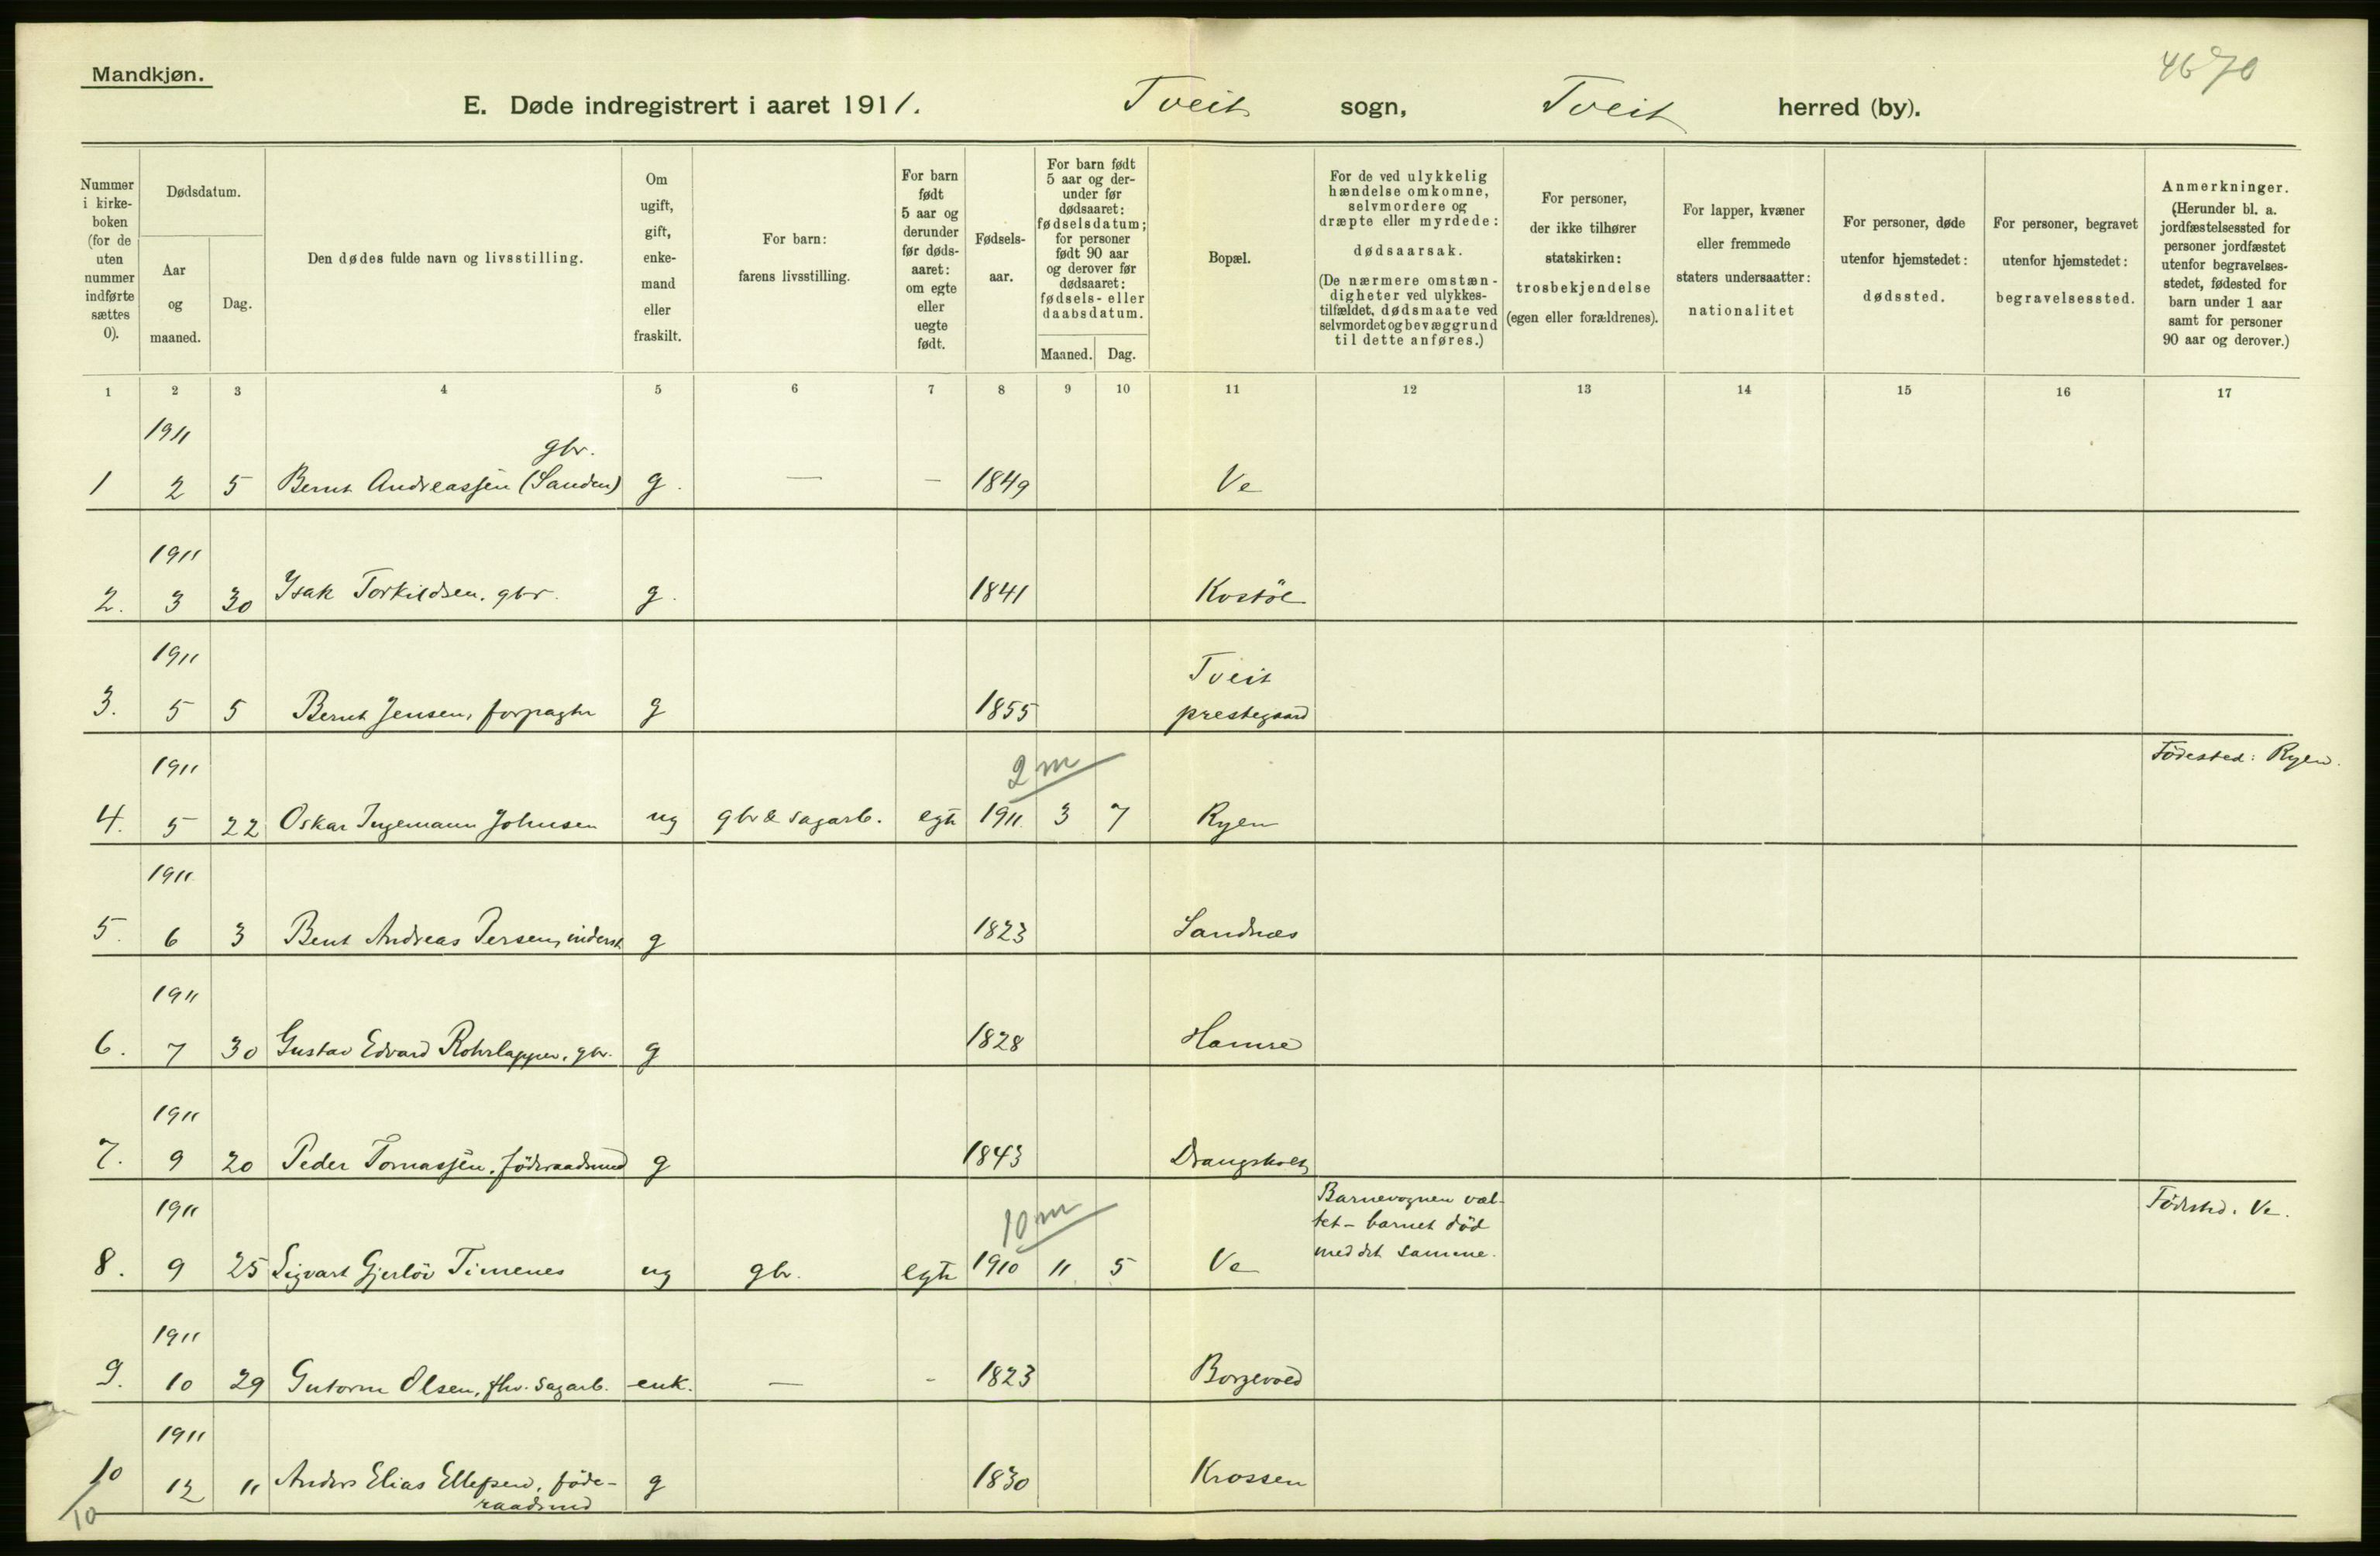 Mandkjøn.
4670
E. Døde indregistrert i aaret 1911. Tveit sogn, Tveit herred (by).
Nummer i kirke-boken (for de uten nummer indførte sættes 0).
Dødsdatum.
Aar og maaned.
Dag.
Den dødes fulde navn og livsstilling.
Om ugift, gift, enke-mand eller fraskilt.
For barn: farens livsstilling.
For barn født 5 aar og derunder før døds-aaret: om egte eller uegte født.
Fødsels-aar.
For barn født 5 aar og der-under før dødsaaret: fødselsdatum; for personer født 90 aar og derover før dødsaaret: fødsels- eller daabsdatum.
Maaned.
Dag.
Bopæl.
For de ved ulykkelig hændelse omkomne, selvmordere og dræpte eller myrdede: dødsaarsak. (De nærmere omstæn-digheter ved ulykkes-tilfældet, dødsmaate ved selvmordet og bevæggrund til dette anføres.)
For personer, der ikke tilhører statskirken: trosbekjendelse (egen eller forældrenes).
For lapper, kvæner eller fremmede staters undersaatter: nationalitet
For personer, døde utenfor hjemstedet: dødssted.
For personer, begravet utenfor hjemstedet: begravelsessted.
Anmerkninger. (Herunder bl. a. jordfæstelsessted for personer jordfæstet utenfor begravelses-stedet, fødested for barn under 1 aar samt for personer 90 aar og derover.)
1 2 3 4 5 6 7 8 9 10 11 12 13 14 15 16 17
1911
gbr.
1 2 5 Bernt Andreassen (Sanden) g. — — 1849 Ve
1911
2. 3 30 Isak Torkildsen, gbr. g. 1841 Kostöl
1911
Tveit
3. 5 5 Bernt Jensen, forpagter g 1855 prestegaard
1911 2m Födested: Ryen.
4. 5 22 Oskar Ingemann Johnsen ug gbr & sagarb. egte 1911 3 7 Ryen
1911
5. 6 3 Bent Andreas Persen, inderst g 1823 Sandnæs
1911
6. 7 30 Gustav Edvard Rohrlapper, gbr. g 1828 Hamre
1911
7. 9 20 Peder Tomassen, föderaadsmd g 1843 Drangsholt
1911 10m Barnevognen væl- Födested. Ve.
tet – barnet död
med det samme.
8. 9 25 Sigvart Gjerlöv Timenes ug gbr. egte 1910 11 5 Ve
1911
9. 10 29 Gutorm Olsen, fhv. sagarb. enk. — - 1823 Borgevold
1911
10 12 11 Anders Elias Ellefsen, föde- g 1830 Krossen
raadsmd
10